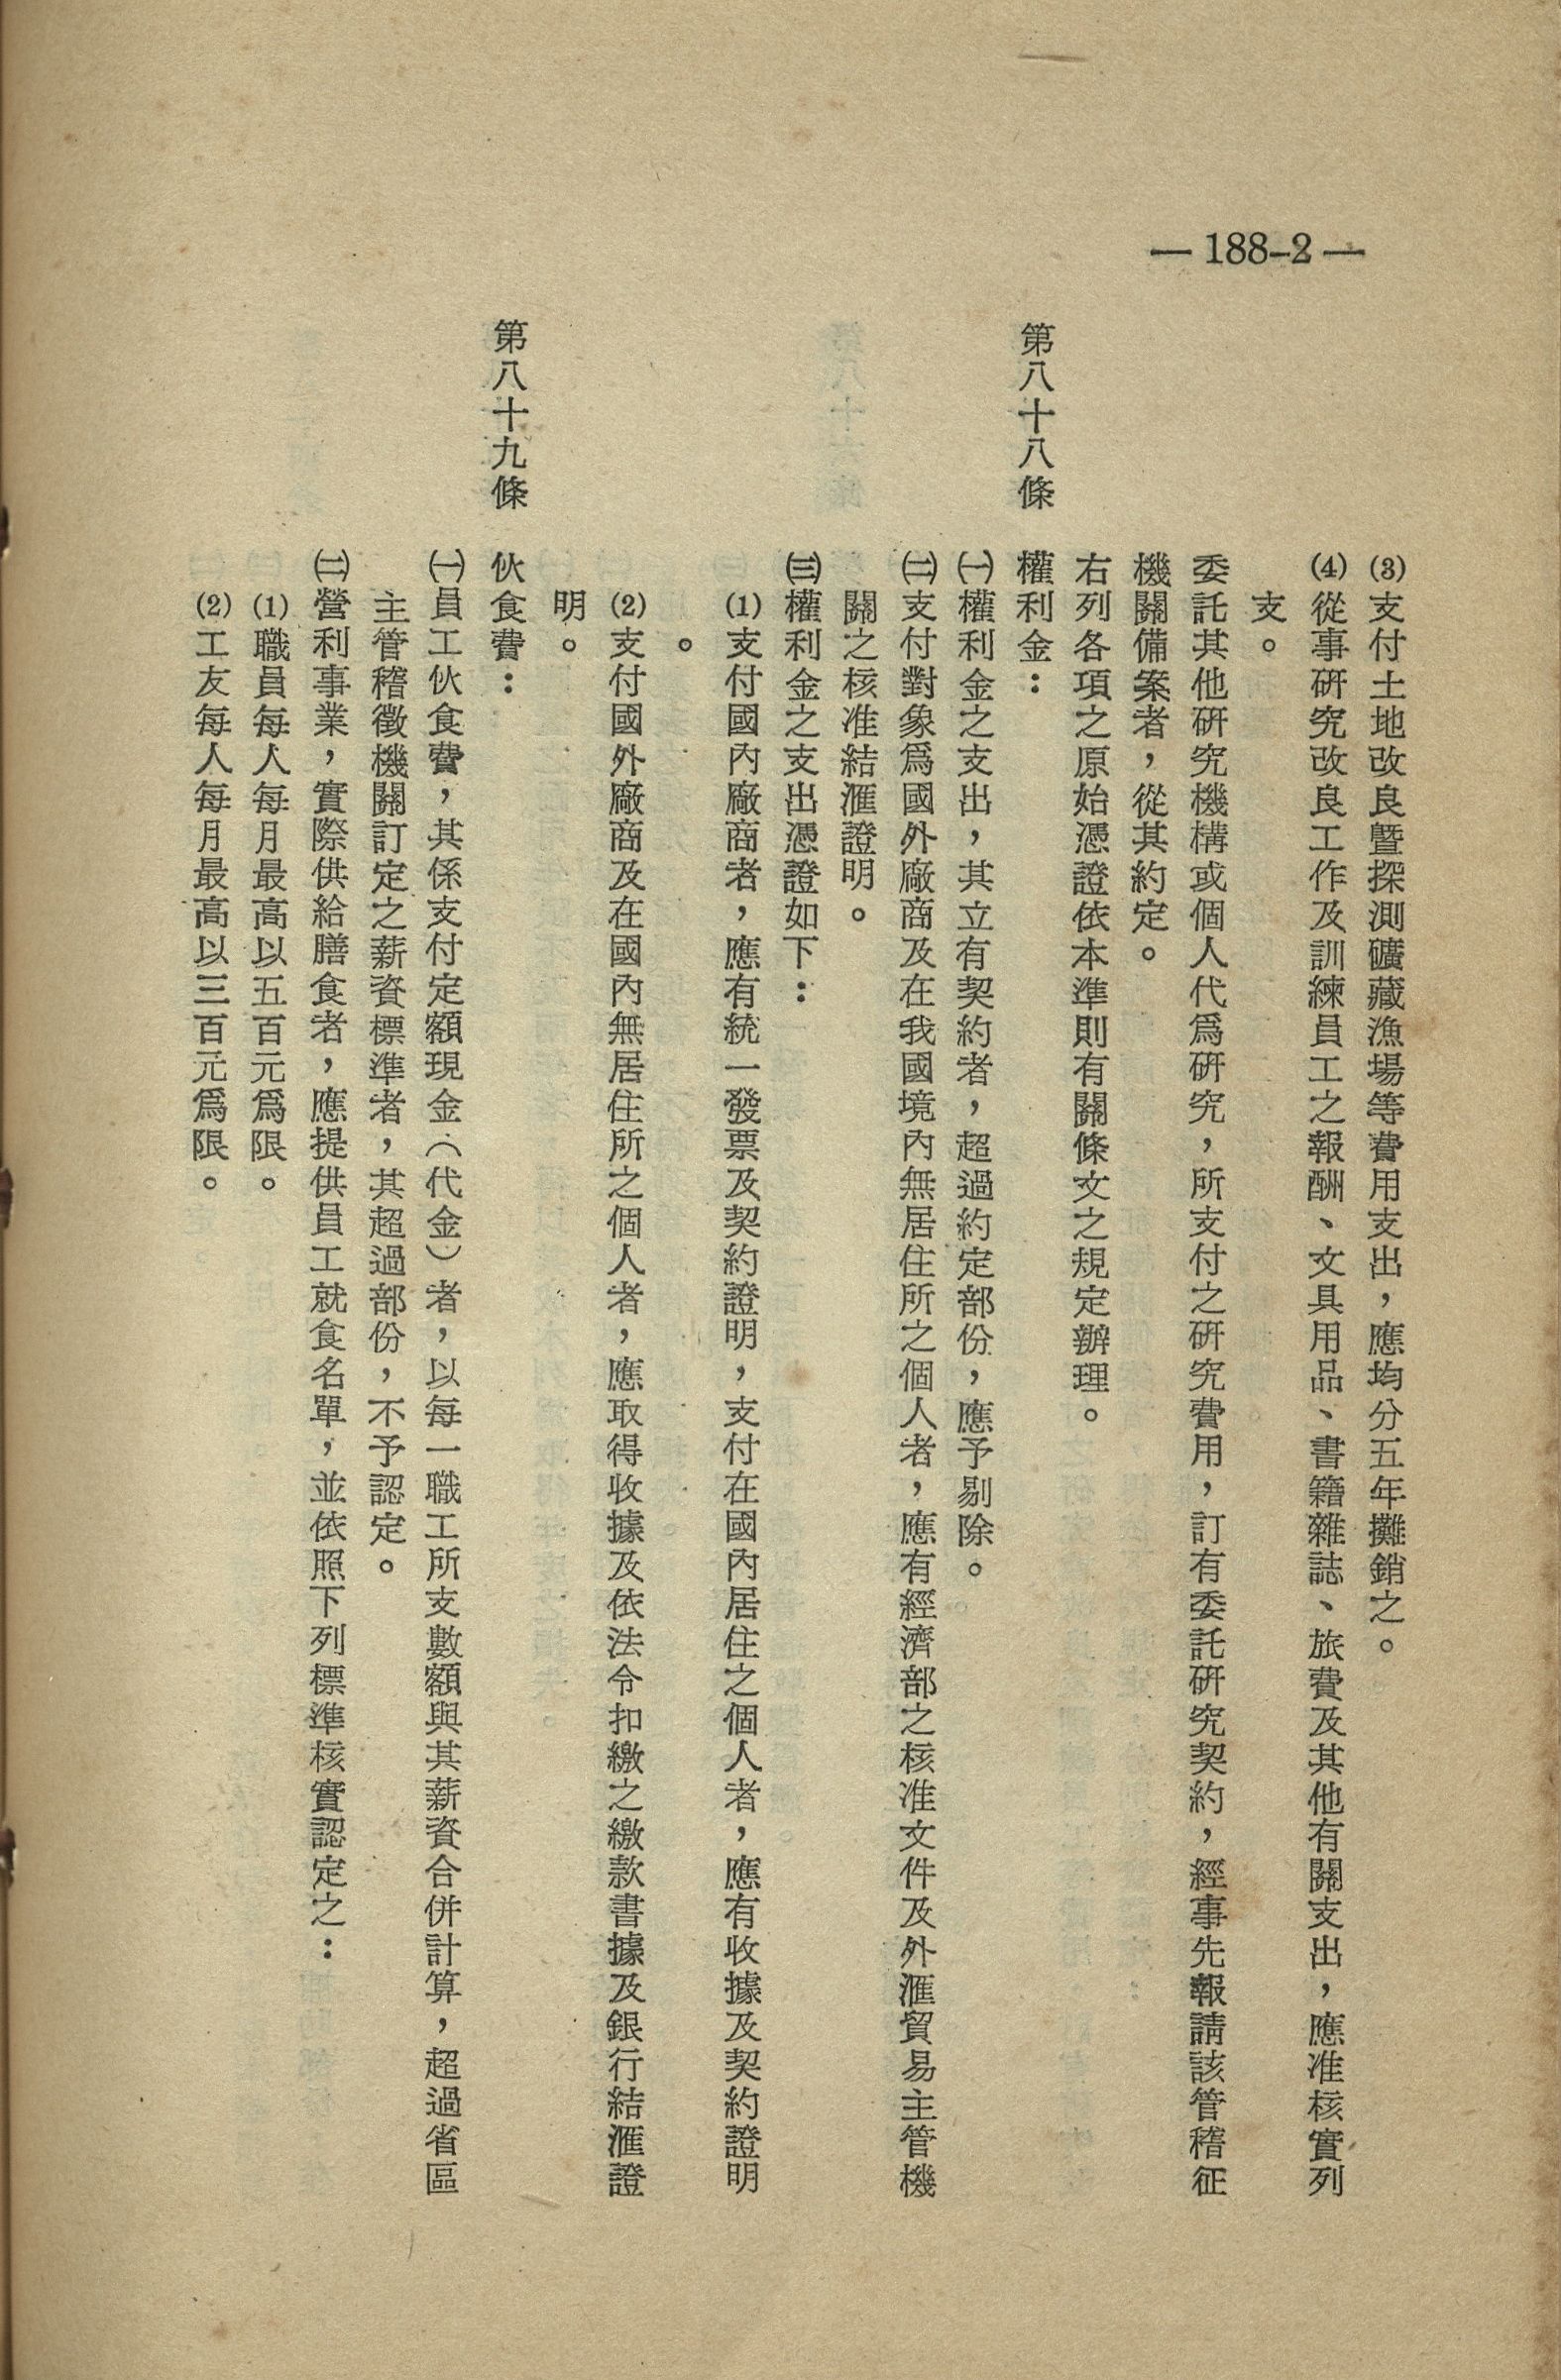 — 188-2 —
⑶支付土地改良暨探測礦藏漁場等費用支出，應均分五年攤銷之。
⑷從事研究改良工作及訓練員工之報酬、文具用品、書籍雜誌、旅費及其他有關支出，應准核實列
支。
委託其他研究機構或個人代爲研究，所支付之研究費用，訂有委託研究契約，經事先報請該管稽征
機關備案者，從其約定。
右列各項之原始憑證依本準則有關條文之規定辦理。
第八十八條　權利金：
㈠權利金之支出，其立有契約者，超過約定部份，應予剔除。
㈡支付對象爲國外廠商及在我國境內無居住所之個人者，應有經濟部之核准文件及外滙貿易主管機
關之核准結滙證明。
㈢權利金之支出憑證如下：
⑴支付國內廠商者，應有統一發票及契約證明，支付在國內居住之個人者，應有收據及契約證明
。
⑵支付國外廠商及在國內無居住所之個人者，應取得收據及依法令扣繳之繳款書據及銀行結滙證
明。
第八十九條　伙食費：
㈠員工伙食費，其係支付定額現金（代金）者，以每一職工所支數額與其薪資合併計算，超過省區
主管稽徵機關訂定之薪資標準者，其超過部份，不予認定。
㈡營利事業，實際供給膳食者，應提供員工就食名單，並依照下列標準核實認定之：
⑴職員每人每月最高以五百元爲限。
⑵工友每人每月最高以三百元爲限。